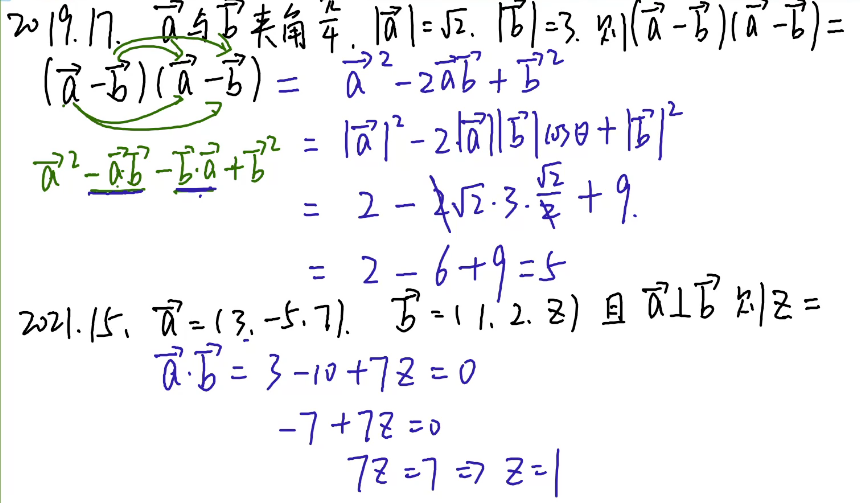 2019.17. a⃗与b⃗夹角π/4. |a⃗|=√2. |b⃗|=3. 则(a⃗-b⃗)(a⃗-b⃗)=
(a⃗-b⃗)(a⃗-b⃗) = a⃗²-2a⃗b⃗+b⃗²
a⃗²-a⃗·b⃗-b⃗·a⃗+b⃗²
= |a⃗|²-2|a⃗||b⃗|cosθ+|b⃗|²
= 2-2√2·3·√2/2+9.
= 2-6+9=5
2021.15、a⃗=(3,-5,7). b⃗=(1,2,z) 且 a⃗⊥b⃗ 则z=
a⃗·b⃗=3-10+7z=0
-7+7z=0
7z=7⇒z=1